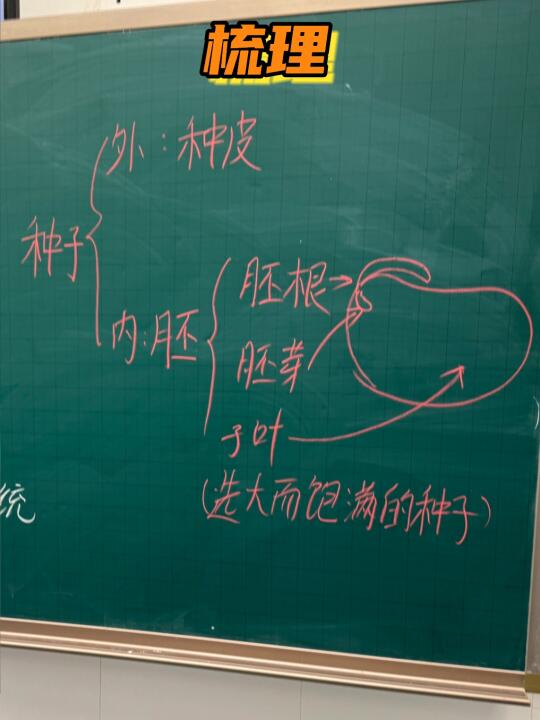 梳理
外：种皮
种子
胚根
内：胚
胚芽
子叶
统
（选大而饱满的种子）